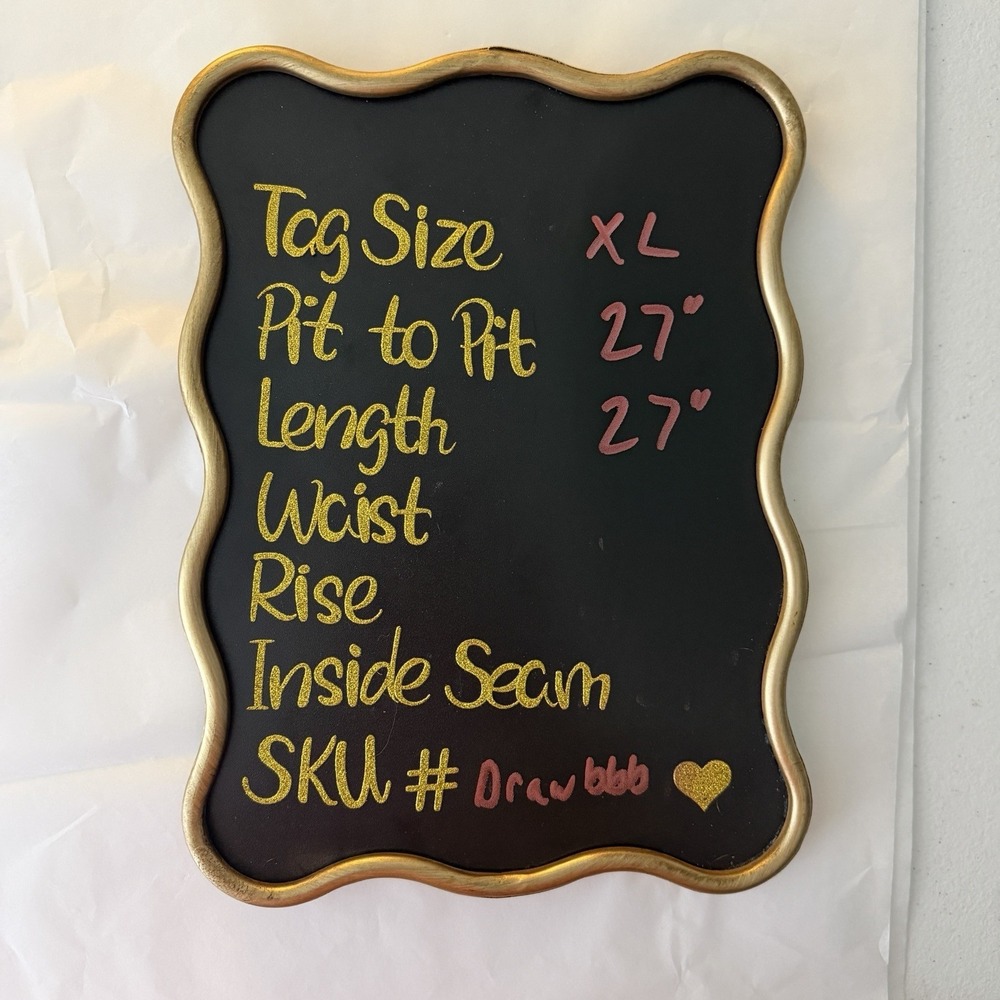 Tag Size XL
Pit to Pit 27"
Length 27"
Waist
Rise
Inside Seam
SKU # Drawbbb